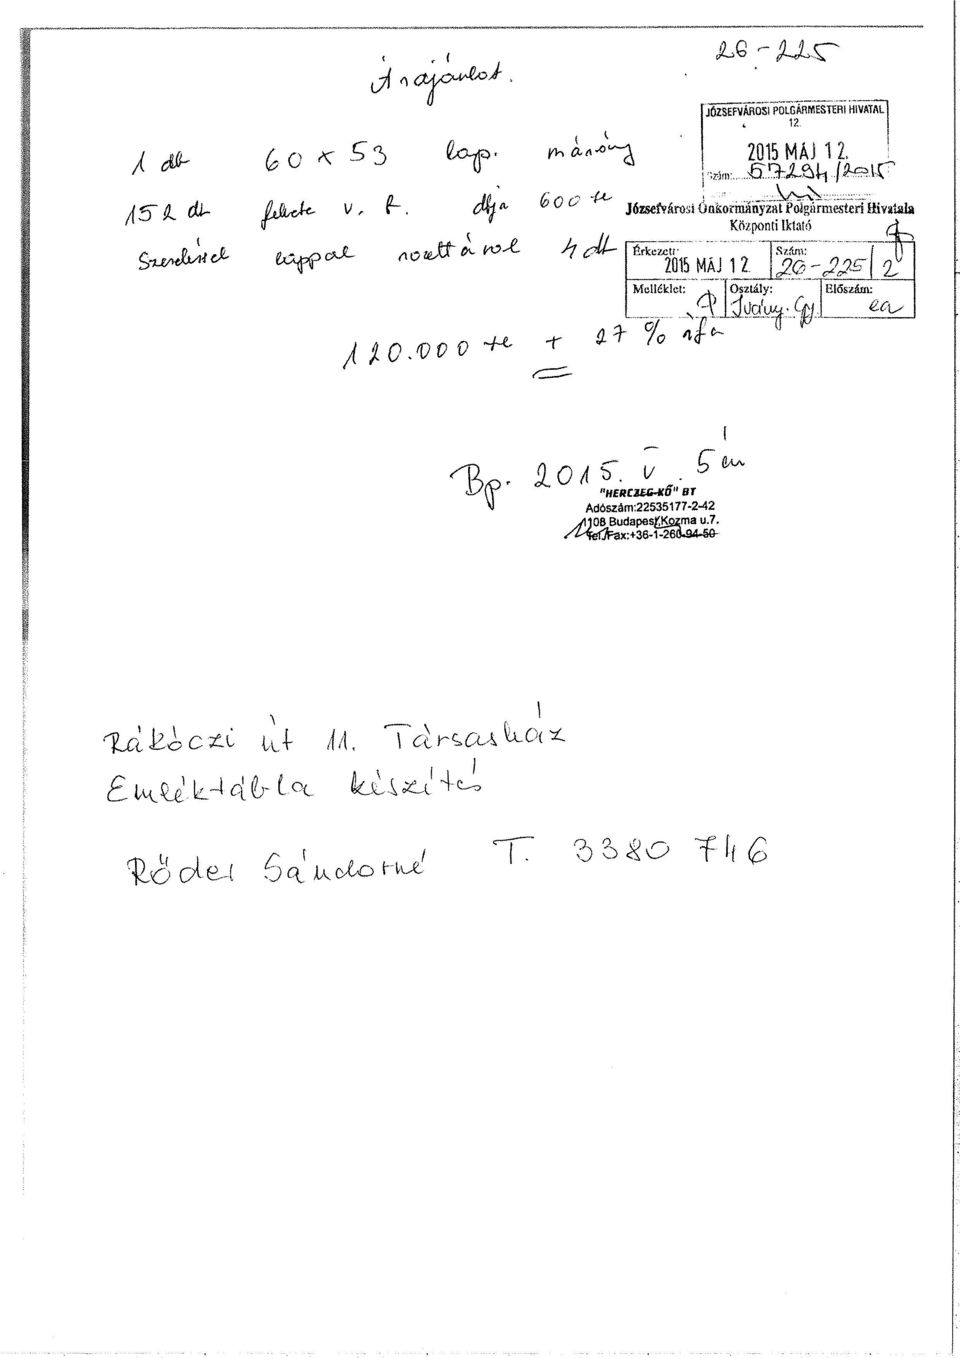 26-225
Árajánlat.
JÓZSEFVÁROSI POLGÁRMESTERI HIVATAL
12.
2015 MÁJ 12.
Szám: 57294/2015
1 db 60 x 53 lap. márvány
152 db fekete v. f. dbja 600 ft
Szereléssel lappal rozettával 4 db
Józsefvárosi Önkormányzat Polgármesteri Hivatala
Központi Iktató
Érkezett: 2015 MÁJ 12. Szám: 26-225/2
Melléklet: Osztály: Iványi Gy. Előszám: ea
120.000 ft + 27 % áfa
Bp. 2015. V. 5 én
"HERCZEG-KŐ" BT
Adószám:22535177-2-42
1108 Budapest, Kozma u.7.
Tel./Fax:+36-1-260-94-50
Rákóczi út 11. Társasház
Emléktábla készítés
Rőder Sándorné T. 3380 746